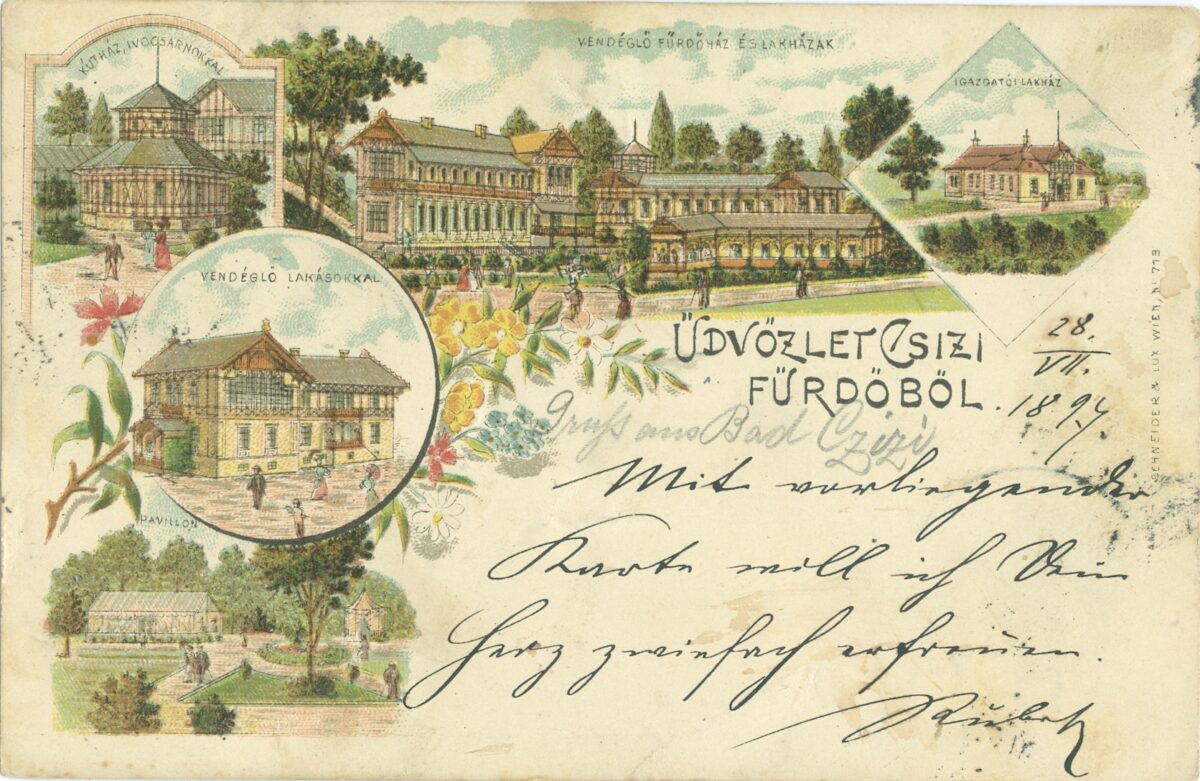 KUTHÁZ, IVOCSARNOKKAL
VENDÉGLŐ FÜRDŐHÁZ ÉS LAKHÁZAK
IGAZGATÓI LAKHÁZ
VENDÉGLŐ LAKÁSOKKAL
PAVILLON
ÜDVÖZLET CSIZI
FÜRDŐBŐL.
28.
VII.
1897.
Gruß aus Bad Czizi
Mit vorliegender
Karte will ich Dein
Herz zwiefach erfreuen.
SCHNEIDER & LUX WIEN, N. 713